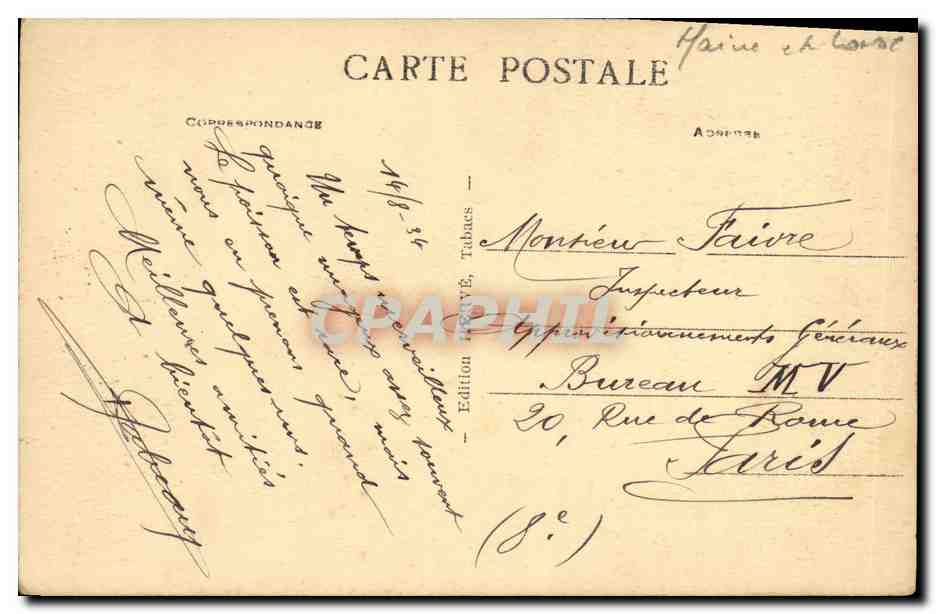 Maine et Loire
CARTE POSTALE
CORRESPONDANCE
ADRESSE
14/8-34
Un temps merveilleux souvent
quoique nuageux assez mais
Le poisson est rare, quand
nous en prenons quelques-uns.
même
Meilleures amitiés
A bientôt
Edition HERVÉ, Tabacs
Monsieur Faivre
Inspecteur
Approvisionnements Généraux
Bureau MV
20, Rue de Rome
Paris
(8e)
CPAPHIL